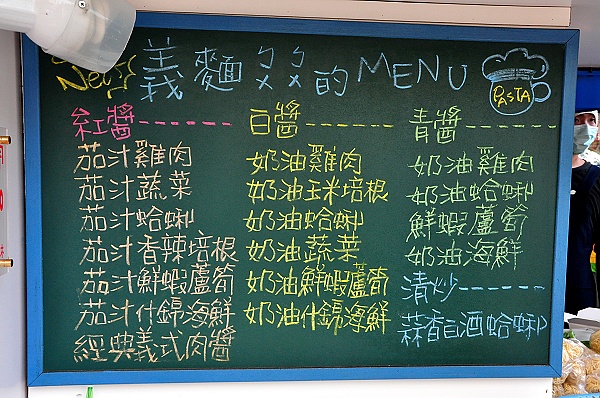 New!! 義麵ㄆㄆ的MENU PASTA
紅醬------
茄汁雞肉
茄汁蔬菜
茄汁蛤蜊
茄汁香辣培根
茄汁鮮蝦蘆筍
茄汁什錦海鮮
經典義式肉醬
白醬------
奶油雞肉
奶油玉米培根
奶油蛤蜊
奶油蔬菜
奶油鮮蝦蘆筍
奶油什錦海鮮
青醬------
奶油雞肉
奶油蛤蜊
鮮蝦蘆筍
奶油海鮮
清炒------
蒜香白酒蛤蜊